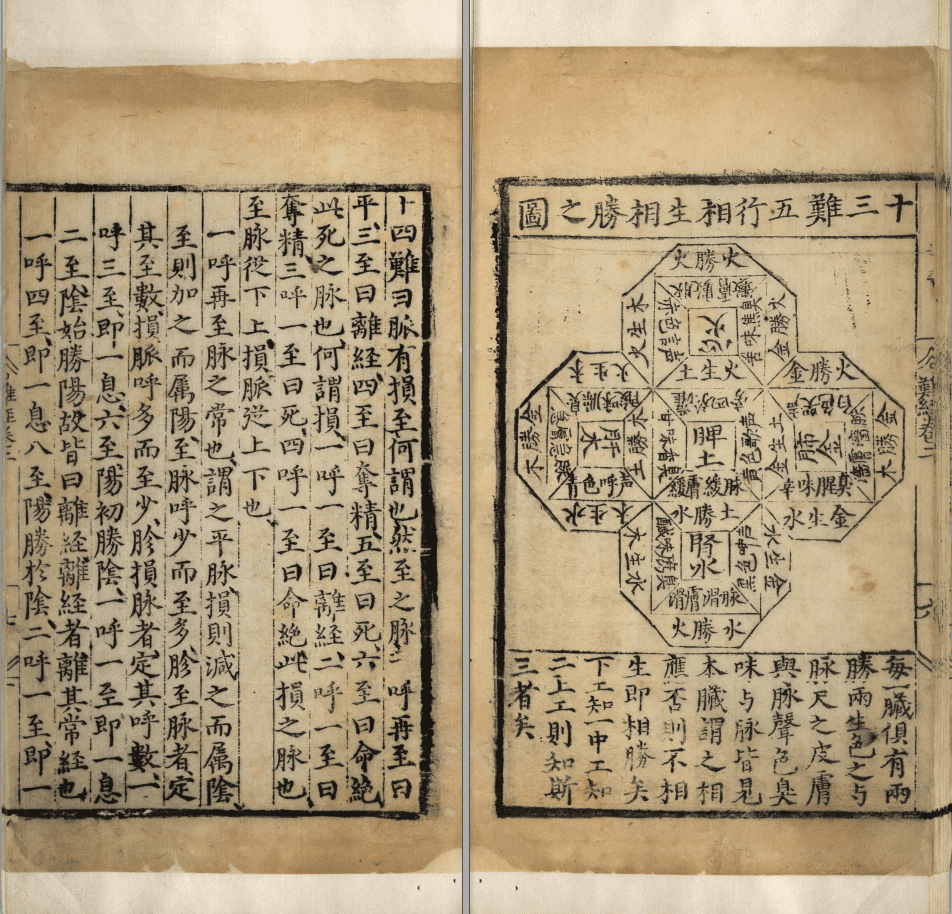 十三難五行相生相勝之圖
火勝火
木生火
火勝金
火生土
心火
脾土
肺金
肝木
腎水
火勝金
金勝木
土生金
金生水
木生火
金勝木
木勝土
水生木
土勝水
水生木
金生水
水勝火
每一臟俱有兩
勝兩生色之与
脉尺之皮膚
與脉聲色臭
味与脉皆見
本臟謂之相
應否則不相
生即相勝矣
下工知一中工知
二上工則知斯
三者矣
難經卷二
十四難曰脈有損至何謂也然至之脉一呼再至曰
平三至曰離經四至曰奪精五至曰死六至曰命絕
此死之脉也何謂損一呼一至曰離經二呼一至曰
奪精三呼一至曰死四呼一至曰命絕此損之脉也
至脉從下上損脈從上下也
一呼再至脉之常也謂之平脉損則減之而属陰
至則加之而属陽至脉呼少而至多胗至脉者定
其至數損脈呼多而至少胗損脉者定其呼數一
呼三至即一息六至陽初勝陰一呼一至即一息
二至陰始勝陽故皆曰離経離経者離其常經也
一呼四至即一息八至陽勝於陰二呼一至即一